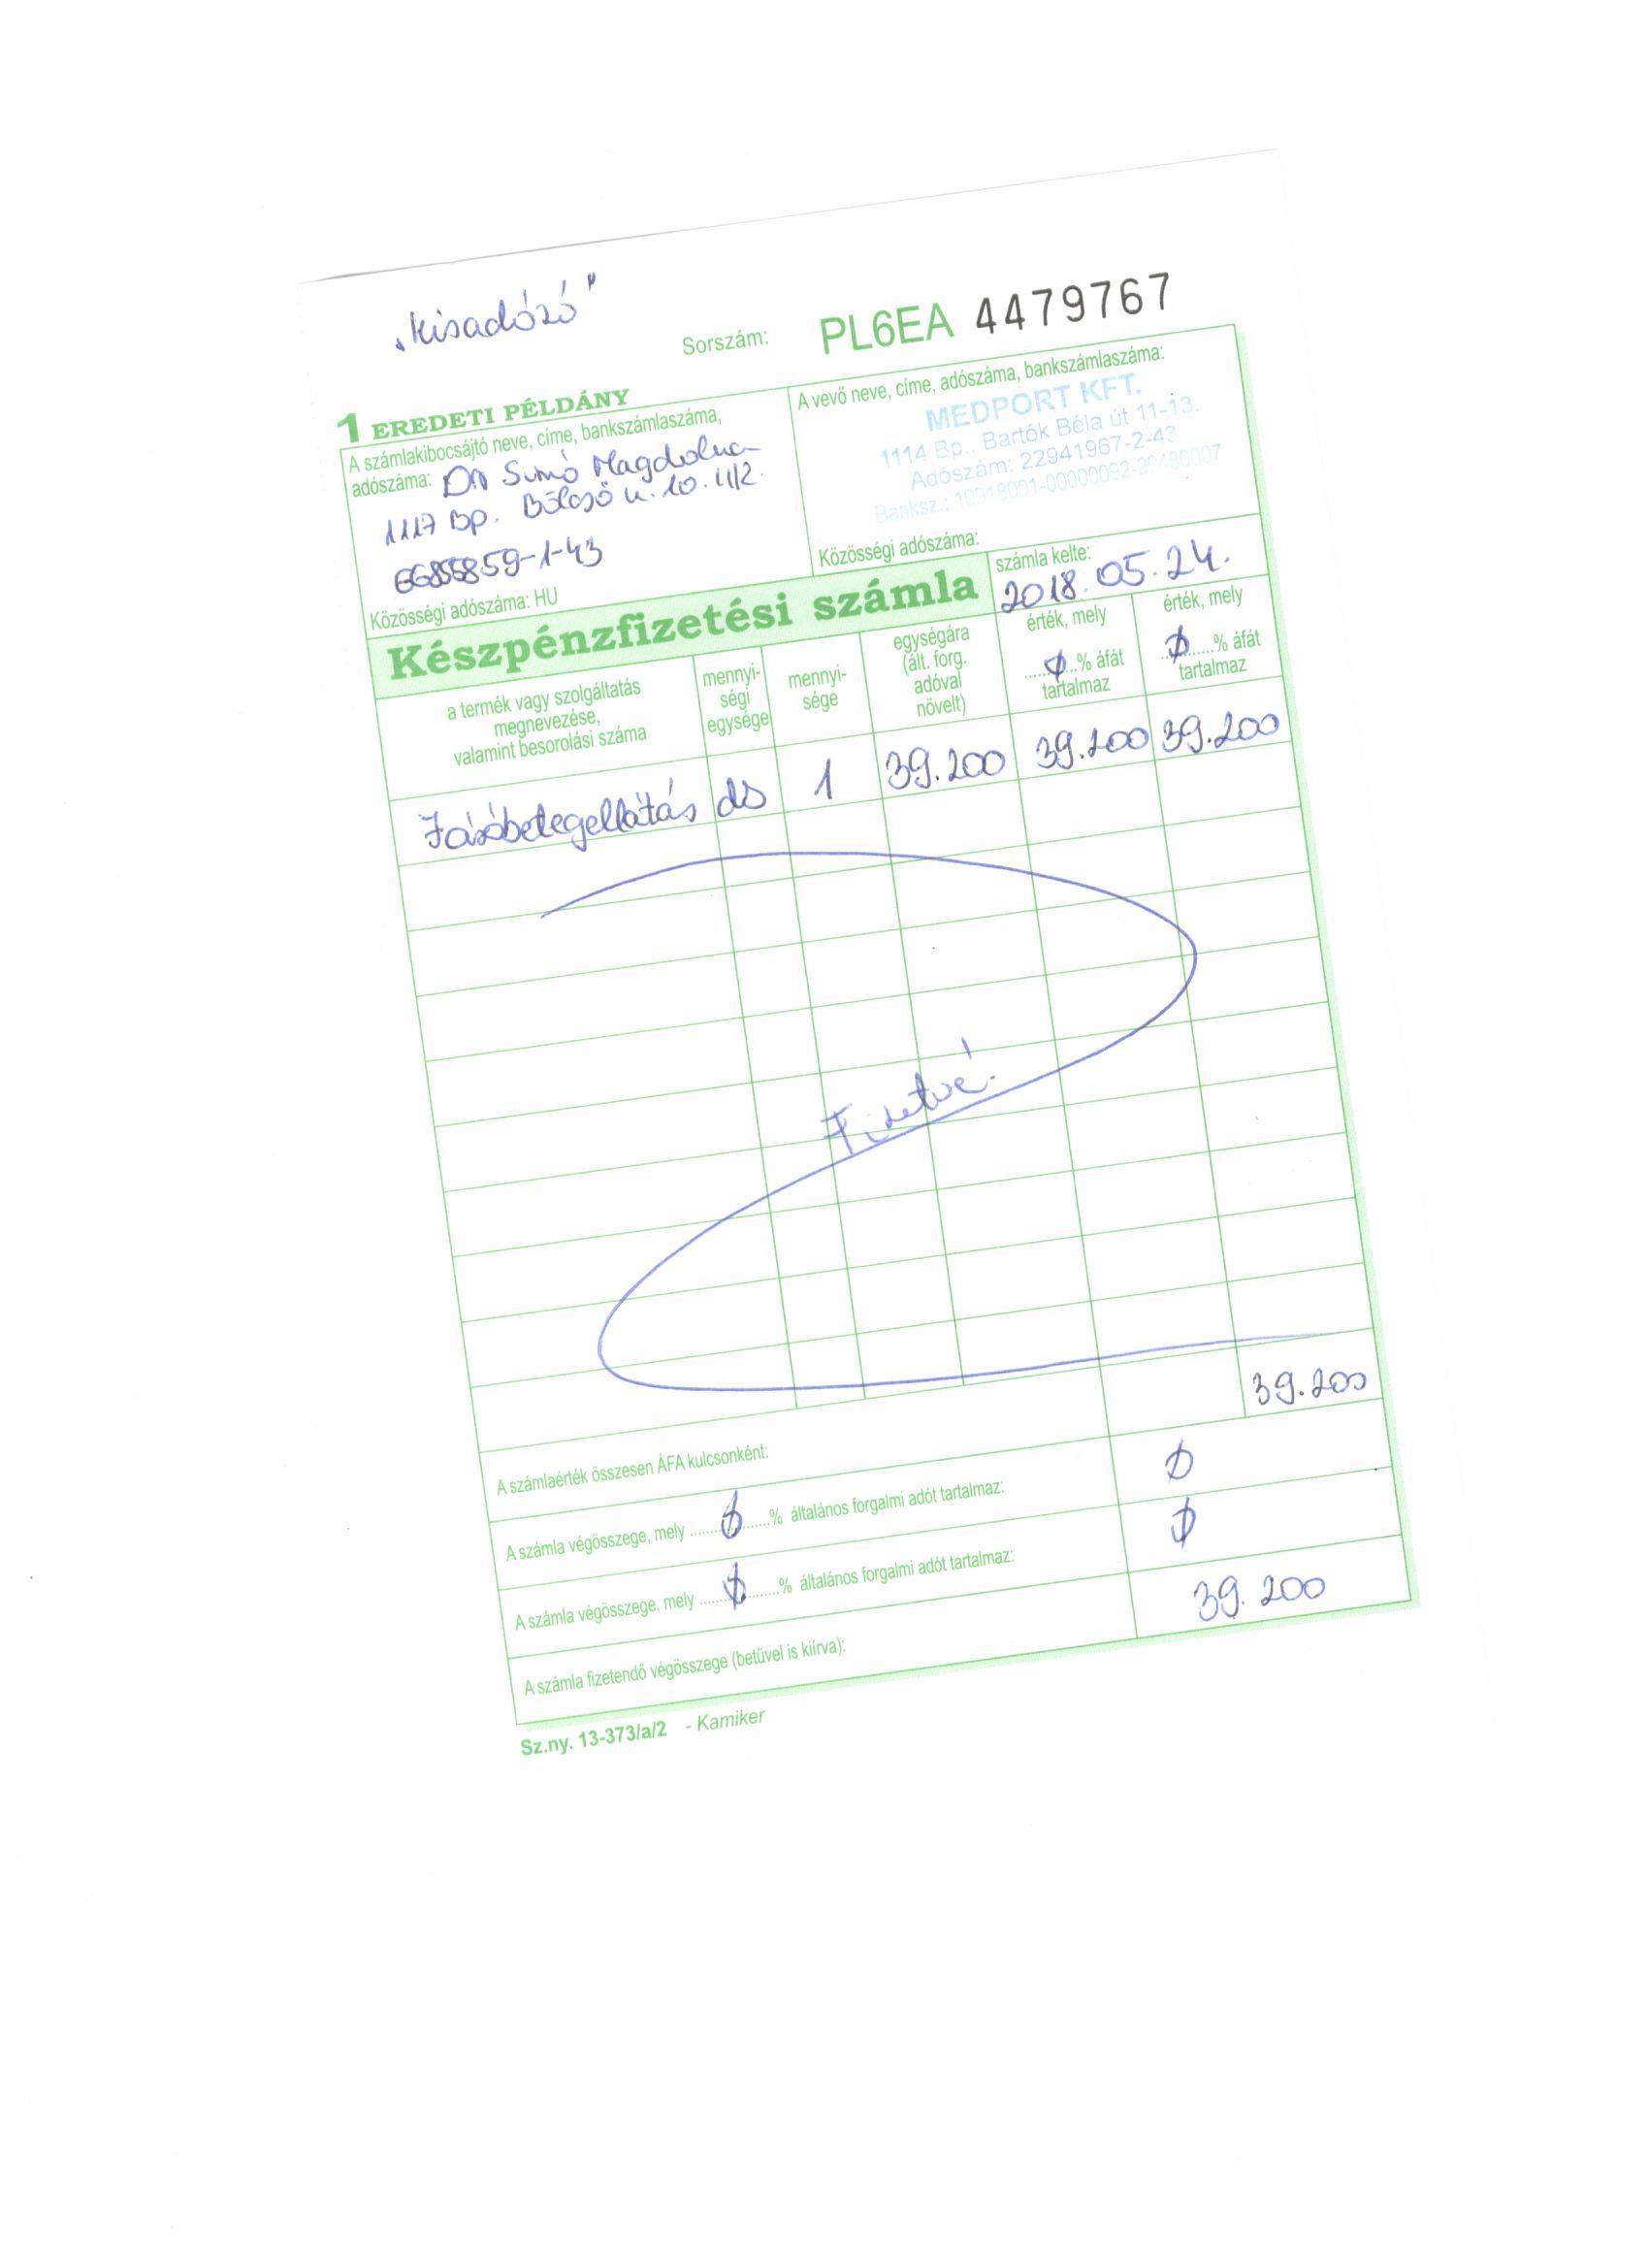 „Kisadózó"
Sorszám: PL6EA 4479767
1 EREDETI PÉLDÁNY
A számlakibocsájtó neve, címe, bankszámlaszáma,
adószáma: Dr Simó Magdolna
1117 Bp. Bölcső u. 10. II/2.
66855859-1-43
Közösségi adószáma: HU
A vevő neve, címe, adószáma, bankszámlaszáma:
MEDPORT KFT.
1114 Bp., Bartók Béla út 11-13.
Adószám: 22941967-2-43
Banksz.:
Közösségi adószáma:
Készpénzfizetési számla
számla kelte:
2018.05.24.
a termék vagy szolgáltatás
megnevezése,
valamint besorolási száma
mennyi-
ségi
egysége
mennyi-
sége
egységára
(ált. forg.
adóval
növelt)
érték, mely
......∅...% áfát
tartalmaz
érték, mely
...∅......% áfát
tartalmaz
Járóbetegellátás db 1 39.200 39.200 39.200
Fizetve!
39.200
A számlaérték összesen ÁFA kulcsonként:
A számla végösszege, mely ........∅........% általános forgalmi adót tartalmaz: ∅
A számla végösszege, mely ........∅........% általános forgalmi adót tartalmaz: ∅
A számla fizetendő végösszege (betűvel is kiírva): 39.200
Sz.ny. 13-373/a/2 - Kamiker